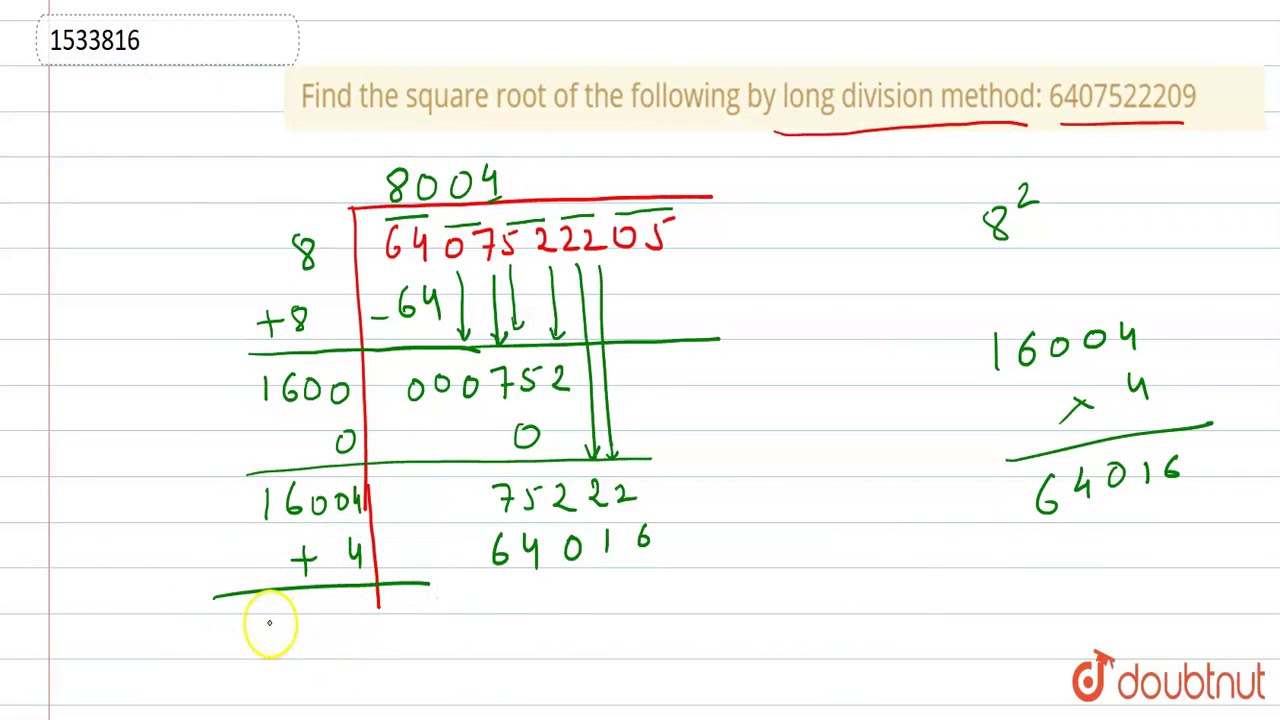 1533816
Find the square root of the following by long division method: 6407522209
8004
8 6407522205
8²
+8 -64
16004
1600 000752
× 4
0 0
64016
16004 75222
+ 4 64016
doubtnut